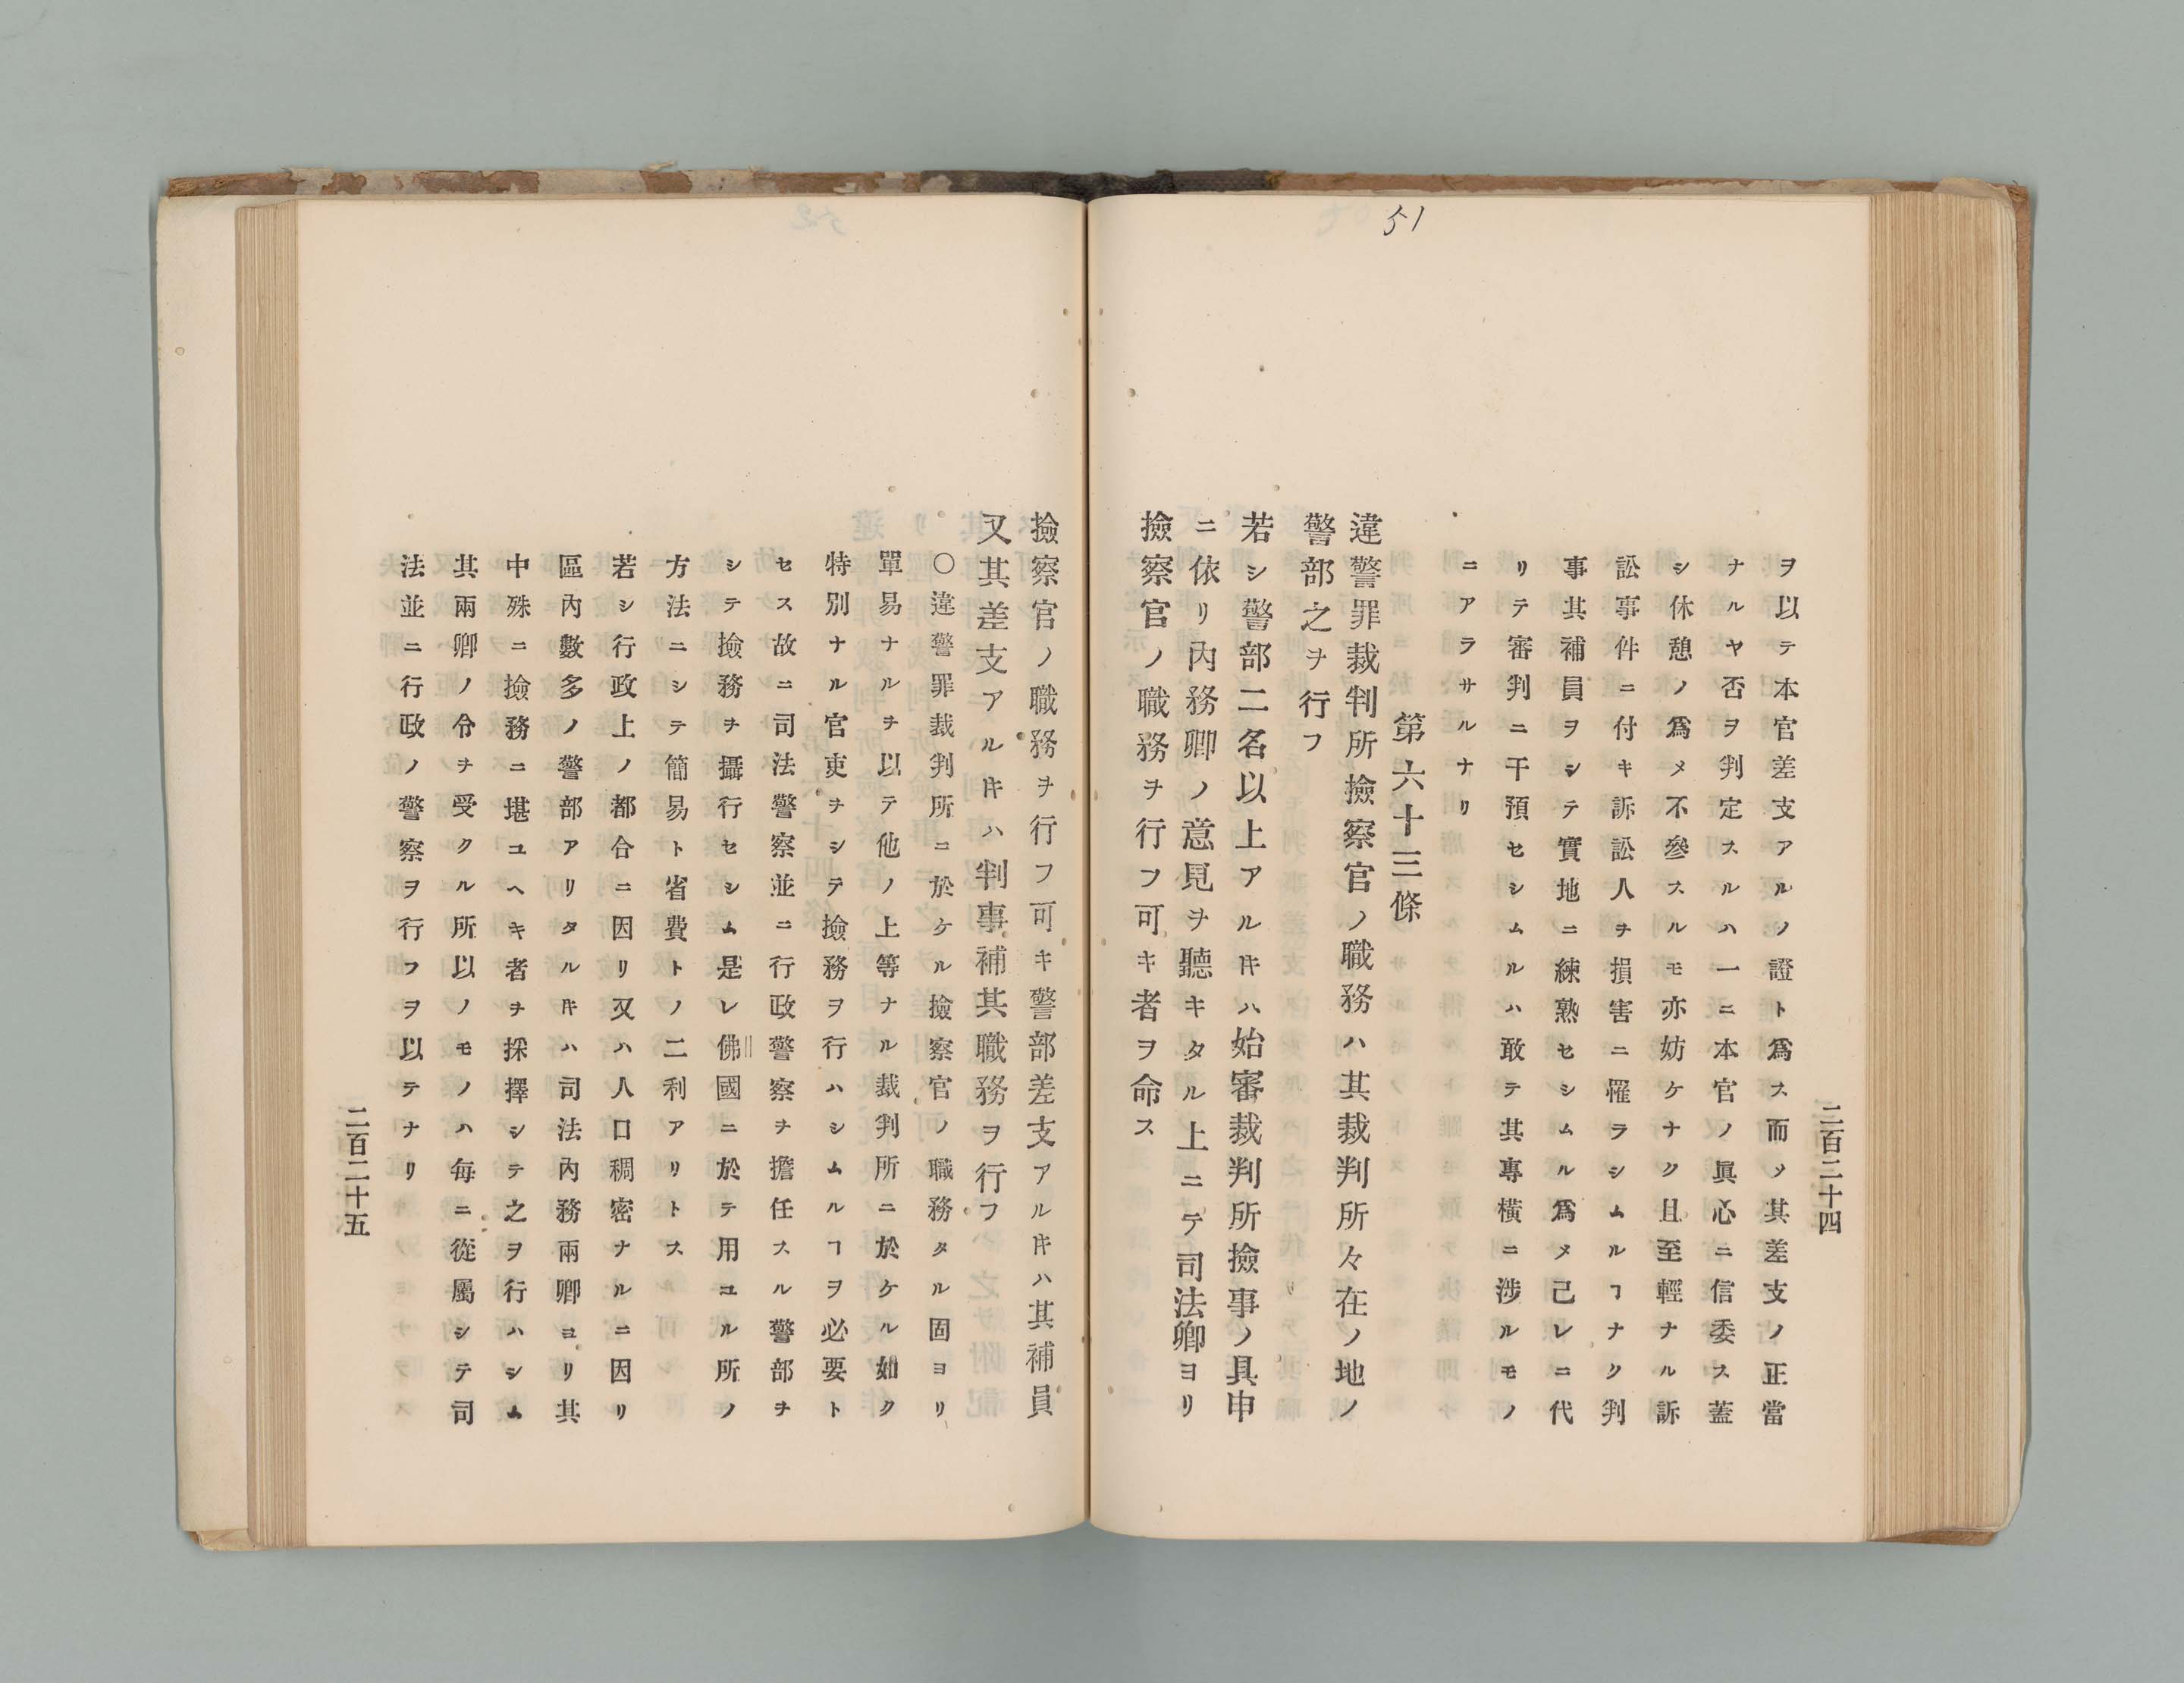 51
二百二十四
ヲ以テ本官差支アルノ證ト爲ス而メ其差支ノ正當
ナルヤ否ヲ判定スルハ一ニ本官ノ眞心ニ信委ス蓋
シ休憩ノ爲メ不參スルモ亦妨ケナク且至輕ナル訴
訟事件ニ付キ訴訟人ヲ損害ニ罹ラシムルヿナク判
事其補員ヲシテ實地ニ練熟セシムル爲メ己レニ代
リテ審判ニ干預セシムルハ敢テ其專橫ニ涉ルモノ
ニアラサルナリ
第六十三條
違警罪裁判所撿察官ノ職務ハ其裁判所々在ノ地ノ
警部之ヲ行フ
若シ警部二名以上アルキハ始審裁判所撿事ノ具申
ニ依リ內務卿ノ意見ヲ聽キタル上ニテ司法卿ヨリ
撿察官ノ職務ヲ行フ可キ者ヲ命ス
撿察官ノ職務ヲ行フ可キ警部差支アルキハ其補員
又其差支アルキハ判事補其職務ヲ行フ
〇違警罪裁判所ニ於ケル撿察官ノ職務タル固ヨリ
單易ナルヲ以テ他ノ上等ナル裁判所ニ於ケル如ク
特別ナル官吏ヲシテ撿務ヲ行ハシムルヿヲ必要ト
セス故ニ司法警察並ニ行政警察ヲ擔任スル警部ヲ
シテ撿務ヲ攝行セシム是レ佛國ニ於テ用ユル所ノ
方法ニシテ簡易ト省費トノ二利アリトス
若シ行政上ノ都合ニ因リ又ハ人口稠密ナルニ因リ
區內數多ノ警部アリタルキハ司法內務兩卿ヨリ其
中殊ニ撿務ニ堪ユヘキ者ヲ採擇シテ之ヲ行ハシム
其兩卿ノ令ヲ受クル所以ノモノハ每ニ從屬シテ司
法並ニ行政ノ警察ヲ行フヲ以テナリ
二百二十五